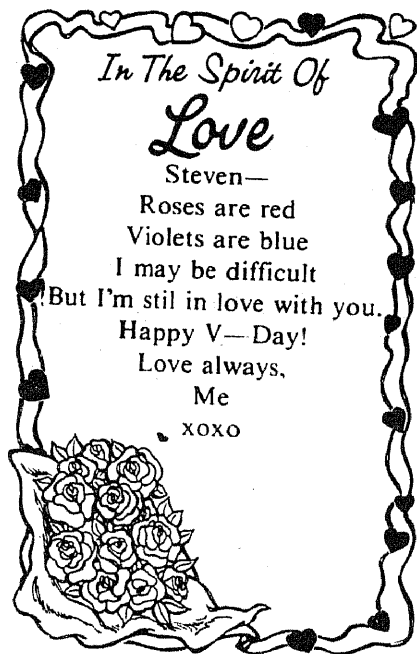 In The Spirit Of
Love
Steven—
Roses are red
Violets are blue
I may be difficult
!But I'm stil in love with you.
Happy V—Day!
Love always,
Me
xoxo